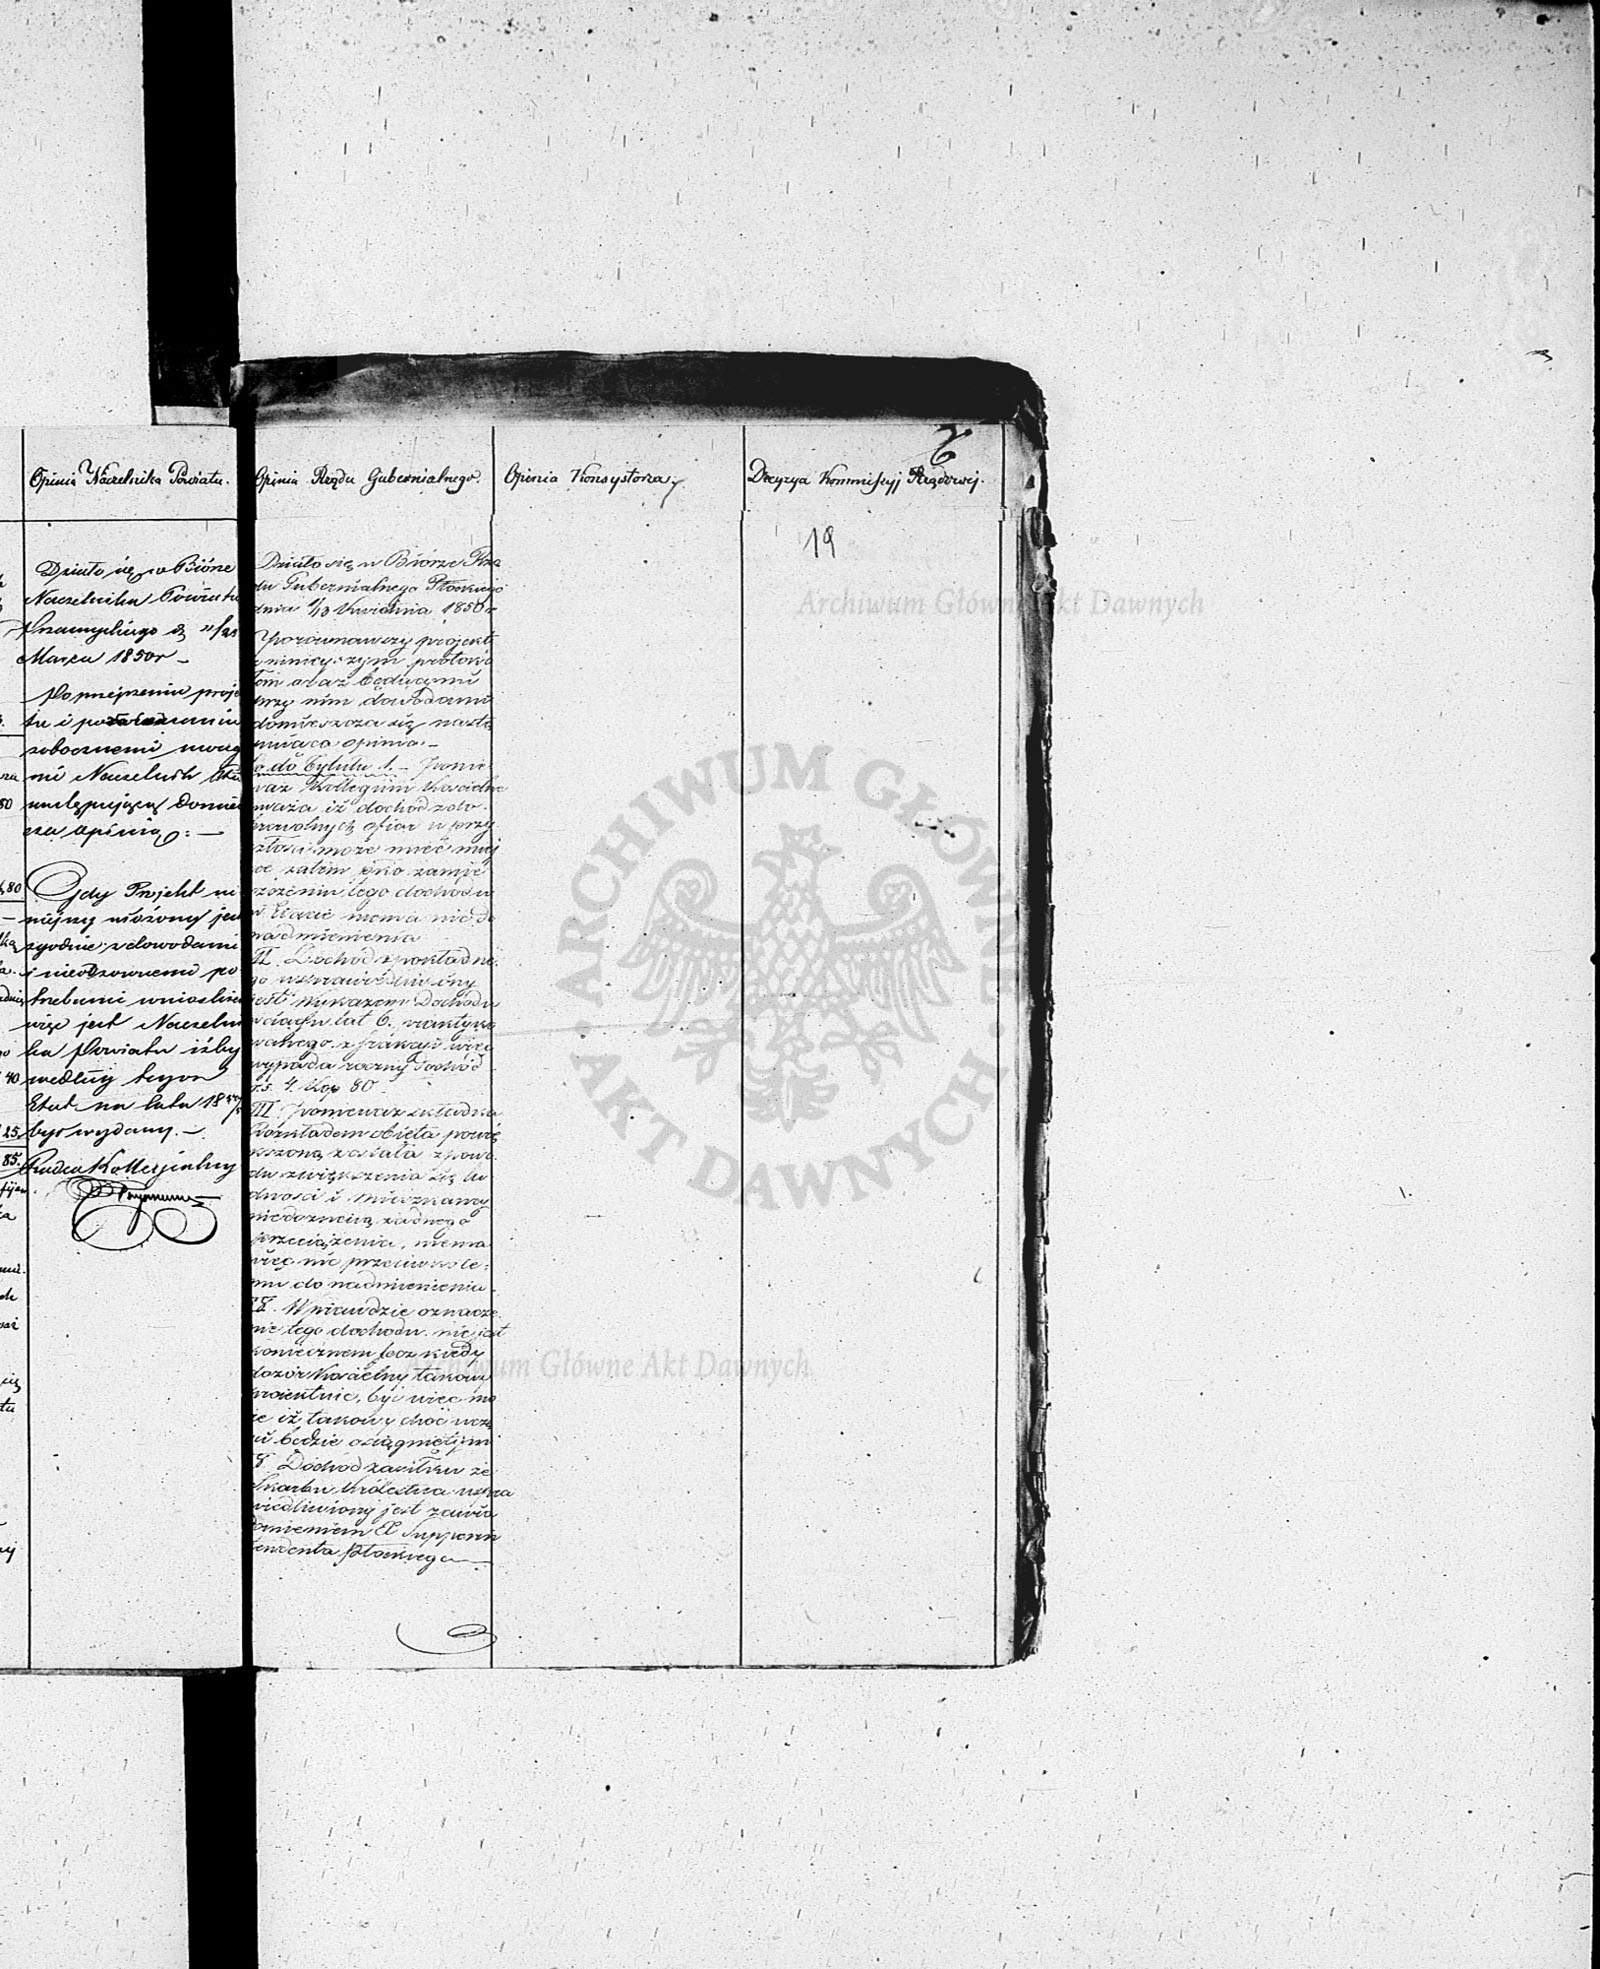 Opinia Naczelnika Powiatu.
Działo się w Biórze
Naczelnika Powiatu
Przasnyskiego d. 11/23
Marca 1850r —
Po przejrzeniu proje
tu i
zobocznemi uwag
mi Naczelnik
następującą domie
cza opinią: —
Gdy Projekt ni
niejszy ułożony jest
zgodnie z dowodami
i nieodzownemi po
trzebami wnioskiem
więc jest Naczelni
ka Powiatu iżby
według tegoż
Etat na lata 18
był wydany. —
Radca Kollegialny
80
80
40
25
85.
Opinia Rządu Gubernialnego.
Działo się w Biórze Rzą
du Gubernialnego Płockiego
dnia 1/13 Kwietnia 1850 r
Porównawszy projekt
z niniejszym protokó
łem oraz będącemi
przy nim dowodami
domieszcza się nastę
pująca opinia. —
Co do Tytułu 1. — Ponie
waż Kollegium Kościelne
uważa iż dochód z do
browolnych ofiar w przy
szłości może mieć miej
sce, zatem
szczeniu tego dochodu
w Etacie niema nic do
nadmienienia
II. Dochód z pokładne
go usprawiedliwiony
jest wykazem Dochodu
w ciągu lat 6. praktyko
wanego, z frakcyi więc
wypada roczny dochód
rs. 4. Kop 80.
III. Ponieważ składka
Rozkładem objęta powię
kszoną została z powo
du zwiększenia się lu
dności i mieszkańcy
niedoznają żadnego
przeciążenia, niema
więc nic przeciwko te
mu do nadmienienia
IV. Wprawdzie oznacze
nie tego dochodu nie jest
koniecznem lecz kiedy
dozór Kościelny takowy
projektuje, być więc mo
że iż takowy choć w czę
ści będzie osiągniętym
V. Dochód zasiłku ze
Skarbu Królestwa uspra
wiedliwiony jest zawia
domieniem X Supperin
tendenta Płockiego —
Opinia Konsystorza
Decyzya Kommissyj Rządowej.
19
Archiwum Główne Akt Dawnych
ARCHIWUM GŁÓWNE · AKT DAWNYCH ·
Archiwum Główne Akt Dawnych